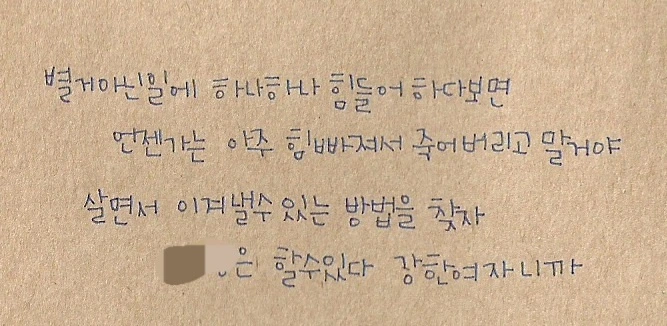 별거아닌일에 하나하나 힘들어 하다보면
언젠가는 아주 힘빠져서 죽어버리고 말거야
살면서 이겨낼수 있는 방법을 찾자
은 할수있다 강한여자니까